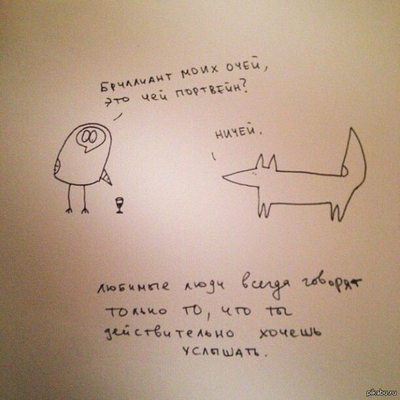 Бриллиант моих очей,
это чей портвейн?
ничей.
любимые люди всегда говорят
только то, что ты
действительно хочешь
услышать.
pikabu.ru